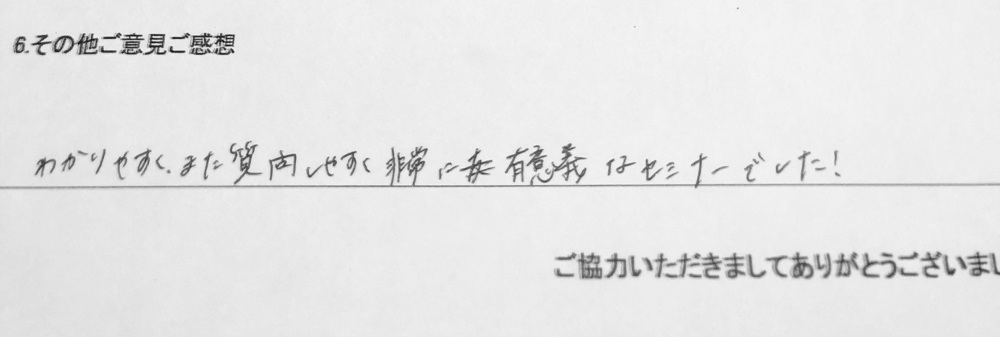 6.その他ご意見ご感想
わかりやすく、また質問しやすく非常に有意義なセミナーでした!
ご協力いただきましてありがとうございまし